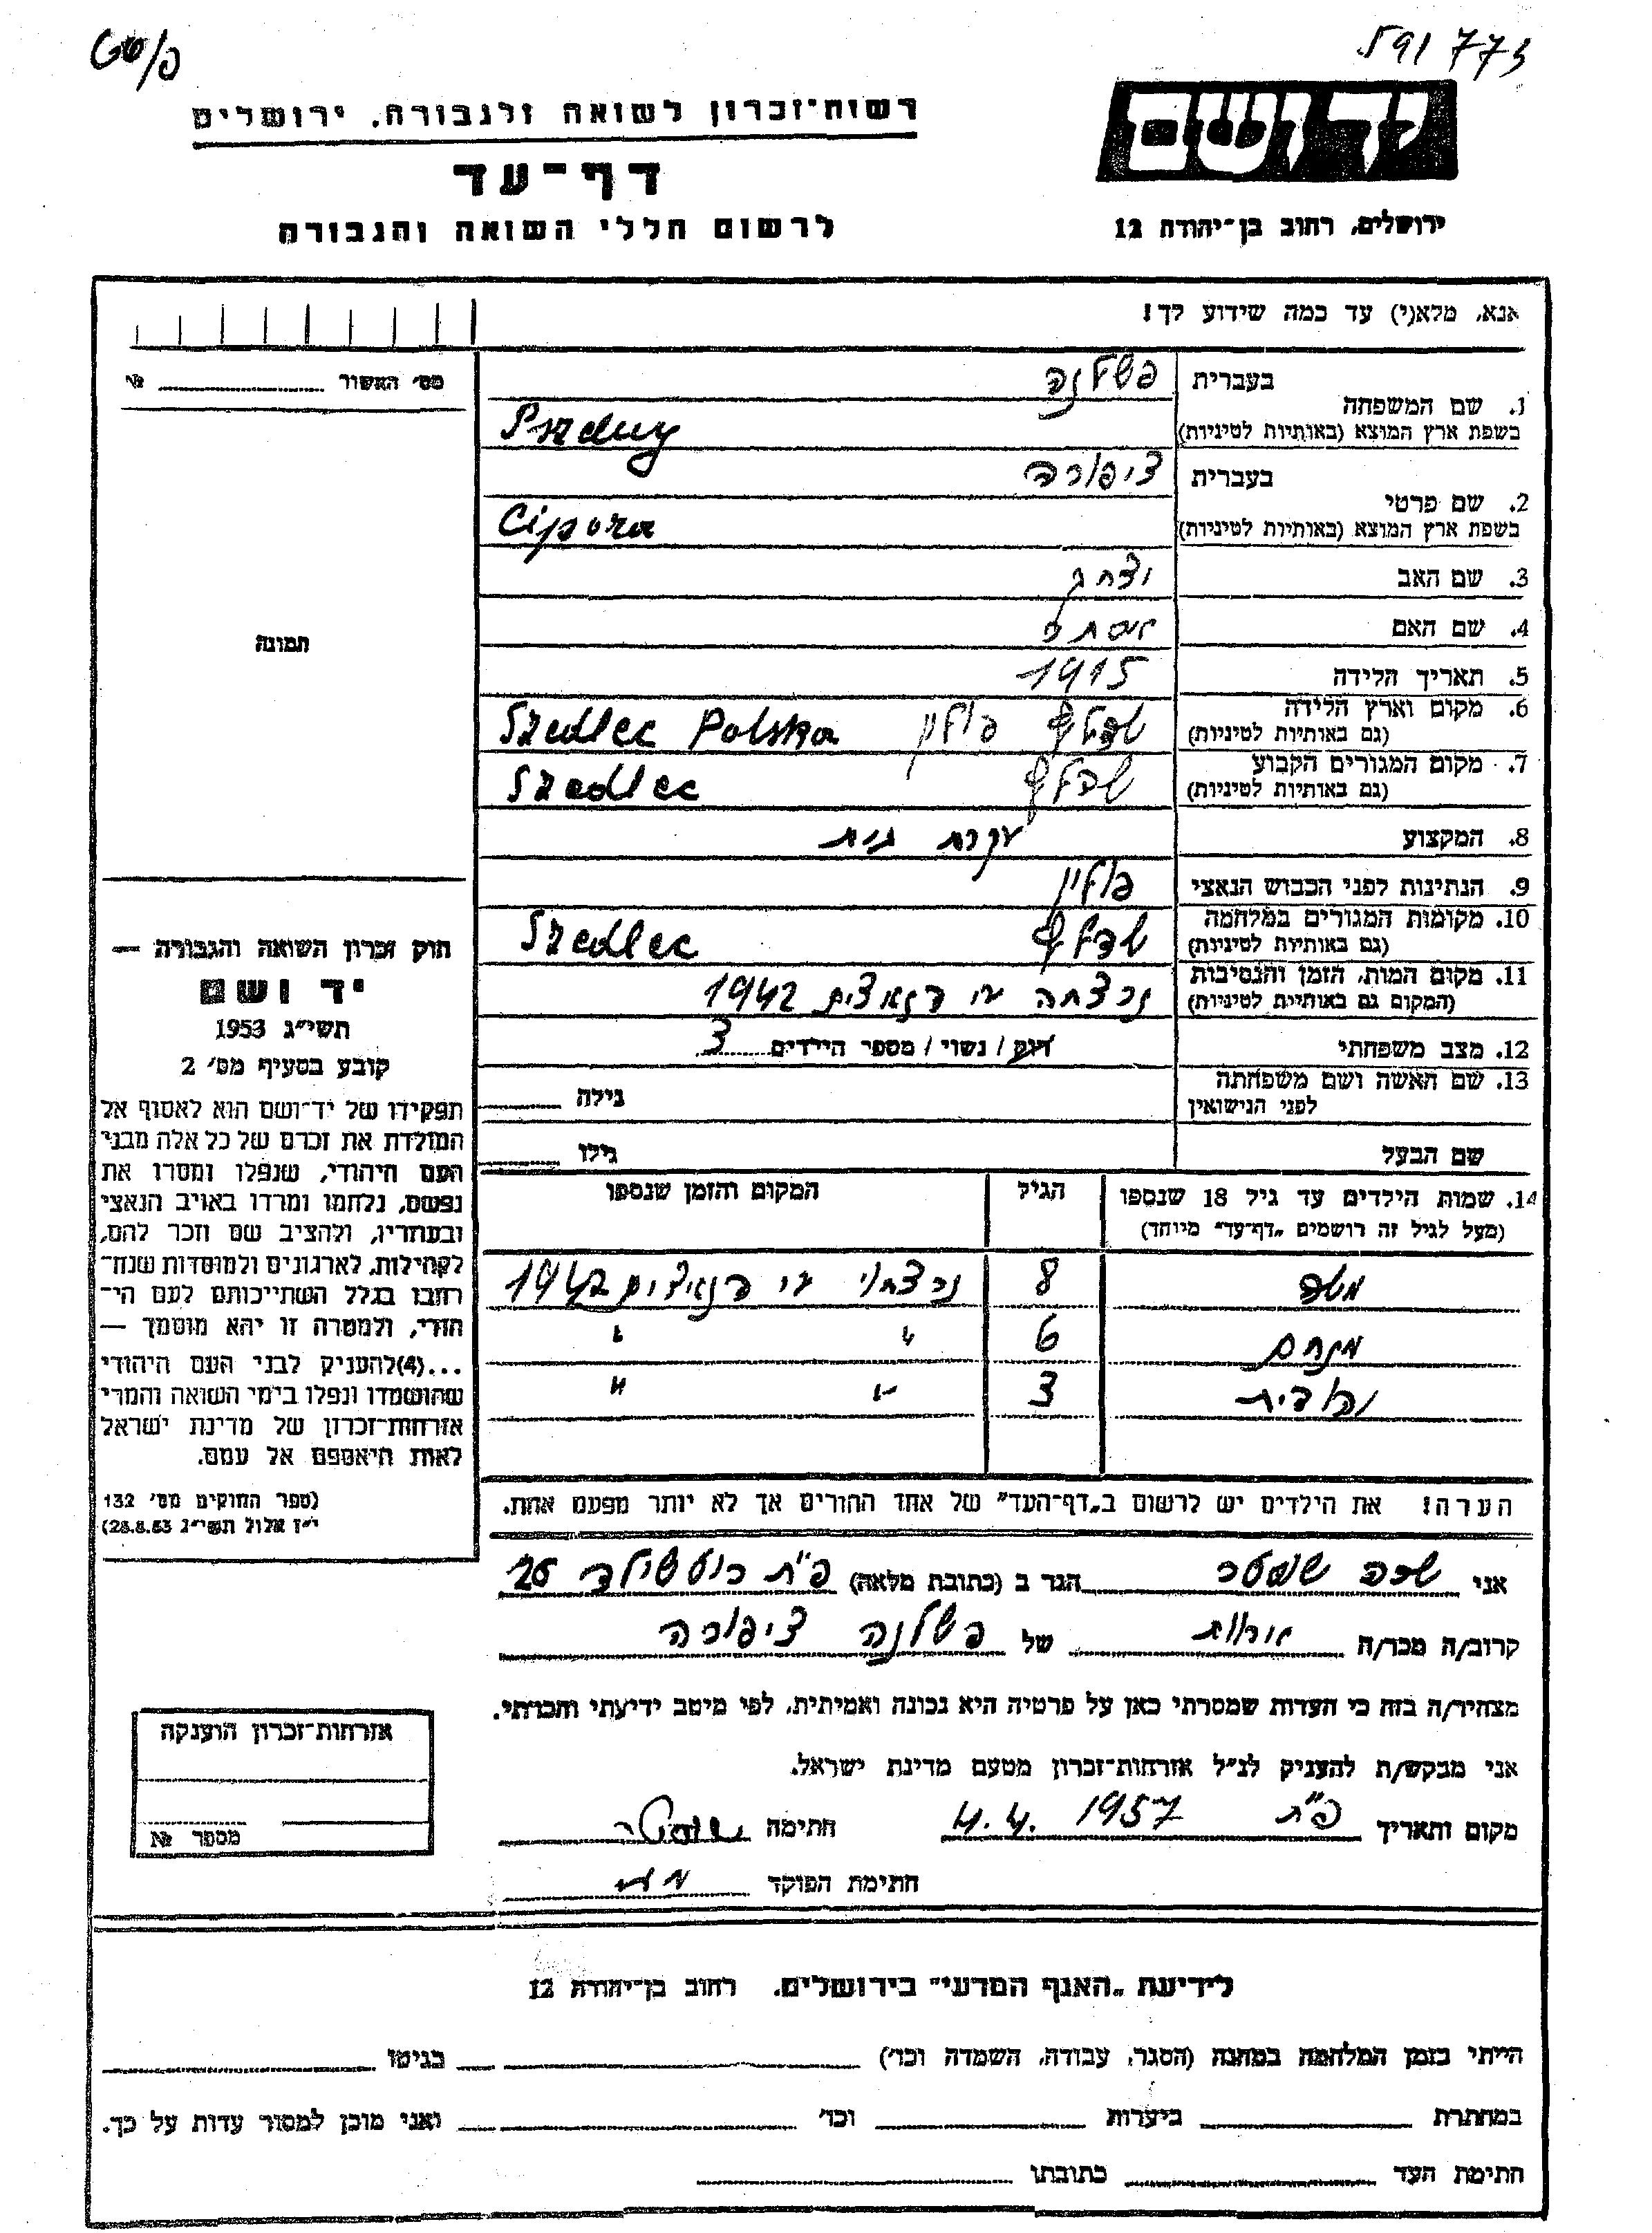 591773
פ/שט
יד ושם
ירושלים, רחוב בן־יהודה 12
רשות־זכרון לשואה ולגבורה, ירושלים
דף־עד
לרשום חללי השואה והגבורה
אנא, מלא(י) עד כמה שידוע לך!
מס׳ האשור № 
תמונה
חוק זכרון השואה והגבורה —
יד ושם
תשי״ג 1953
קובע בסעיף מס׳ 2
תפקידו של יד־ושם הוא לאסוף אל
המולדת את זכרם של כל אלה מבני
העם היהודי, שנפלו ומסרו את
נפשם, נלחמו ומרדו באויב הנאצי
ובעוזריו, ולהציב שם וזכר להם,
לקהילות, לארגונים ולמוסדות שנח־
רבו בגלל השתייכותם לעם הי־
הודי, ולמטרה זו יהא מוסמך —
...(4)להעניק לבני העם היהודי
שהושמדו ונפלו בימי השואה והמרי
אזרחות־זכרון של מדינת ישראל
לאות היאספם אל עמם.
(ספר החוקים מס׳ 132
י״ז אלול תשי״ג 28.8.53)
1. שם המשפחה
בעברית פשלנה
בשפת ארץ המוצא (באותיות לטיניות)
2. שם פרטי
בעברית ציפורה
בשפת ארץ המוצא (באותיות לטיניות) Cipora
3. שם האב יצחק
4. שם האם אסתר
5. תאריך הלידה 1915
6. מקום וארץ הלידה
(גם באותיות לטיניות) שדלץ פולין Szedlec Polska
7. מקום המגורים הקבוע
(גם באותיות לטיניות) שדלץ Szedlec
8. המקצוע עקרת בית
9. הנתינות לפני הכבוש הנאצי פולין
10. מקומות המגורים במלחמה
(גם באותיות לטיניות) שדלץ Szedlec
11. מקום המות, הזמן והנסיבות
(המקום גם באותיות לטיניות) נרצחה ע״י הנאצים 1942
12. מצב משפחתי רווק / נשוי / מספר הילדים 3
13. שם האשה ושם משפחתה
לפני הנישואין גילה
שם הבעל גילו
14. שמות הילדים עד גיל 18 שנספו
(מעל לגיל זה רושמים „דף־עד״ מיוחד)
הגיל
המקום והזמן שנספו
משה 8 נרצחו ע״י הנאצים 1942
מנחם 6 " "
יהודית 3 " "
הערה! את הילדים יש לרשום ב„דף־העד״ של אחד ההורים אך לא יותר מפעם אחת.
אני שרה שוסטר הגר ב (כתובת מלאה) פ״ת רוטשילד 26
קרוב/ה מכר/ה אחות של פשלנה ציפורה
מצהיר/ה בזה כי העדות שמסרתי כאן על פרטיה היא נכונה ואמיתית, לפי מיטב ידיעתי והכרתי.
אני מבקש/ת להעניק לנ״ל אזרחות־זכרון מטעם מדינת ישראל.
מקום ותאריך פ״ת 4.4.1957 חתימה שוסטר
חתימת הפוקד
אזרחות־זכרון הוענקה
מספר №
לידיעת „האגף המדעי״ בירושלים. רחוב בן־יהודה 12
הייתי בזמן המלחמה במחנה (הסגר, עבודה, השמדה וכו׳) בגיטו
במחתרת ביערות וכו׳ ואני מוכן למסור עדות על כך.
חתימת העד כתובתו